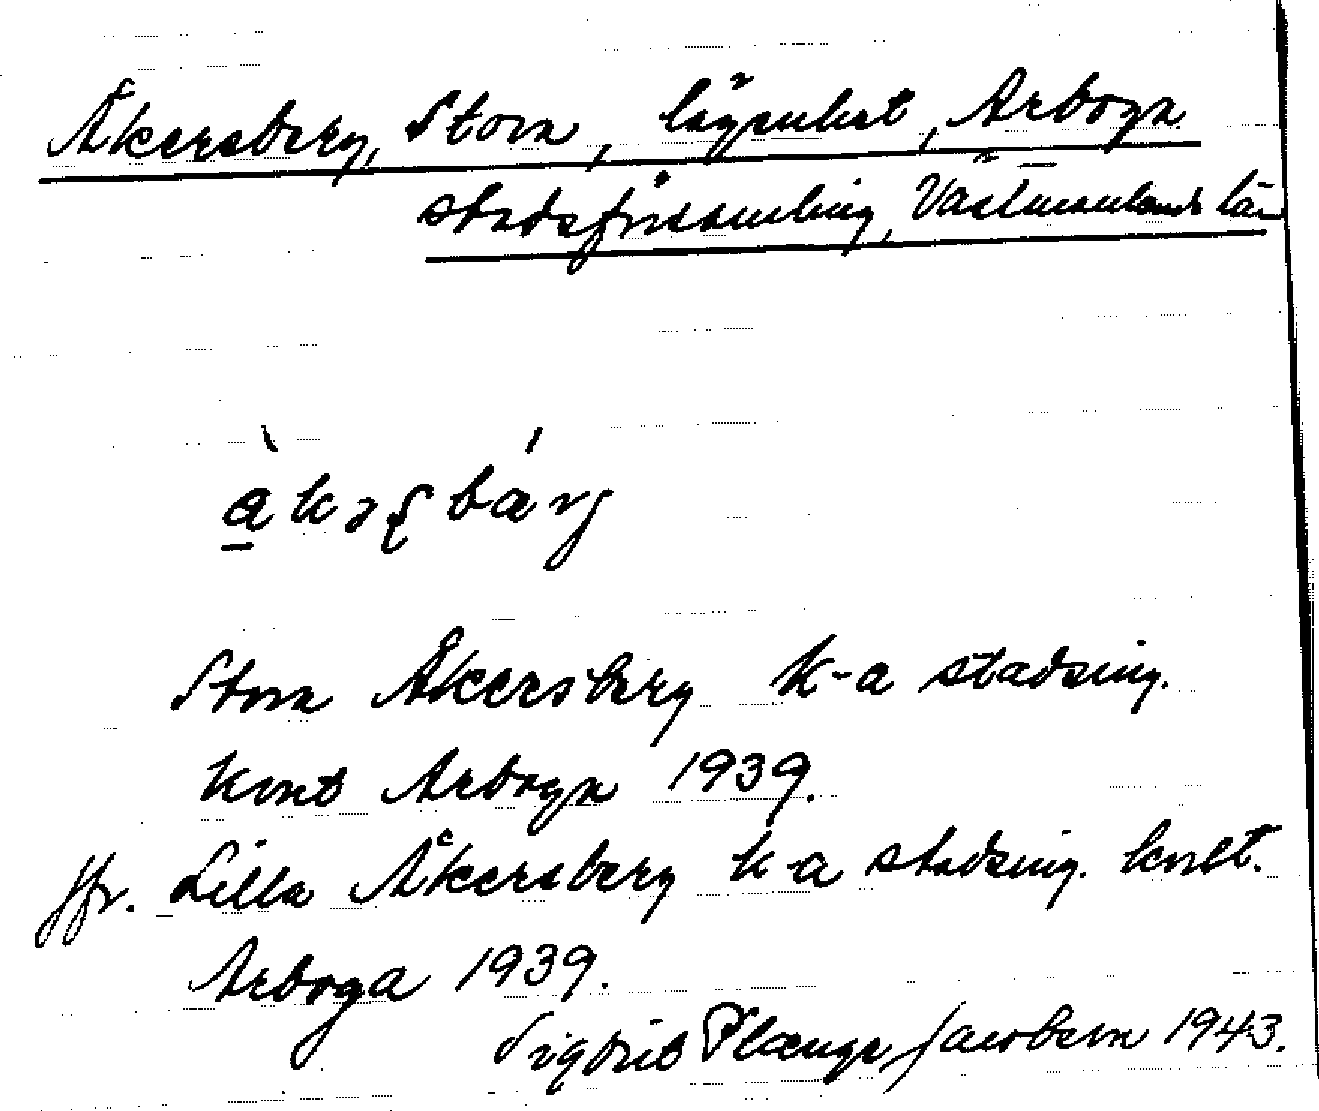 Åkersberg, Stora, lägenhet, Arboga
stadsförsamling, Västmanlands län
Stora Åkersberg k-a stadsing.
kont Arboga 1939.
Jfr. Lilla Åkersberg k-a stadsing. kont.
Arboga 1939.
Sigbrit Plænge Jacobson 1943.